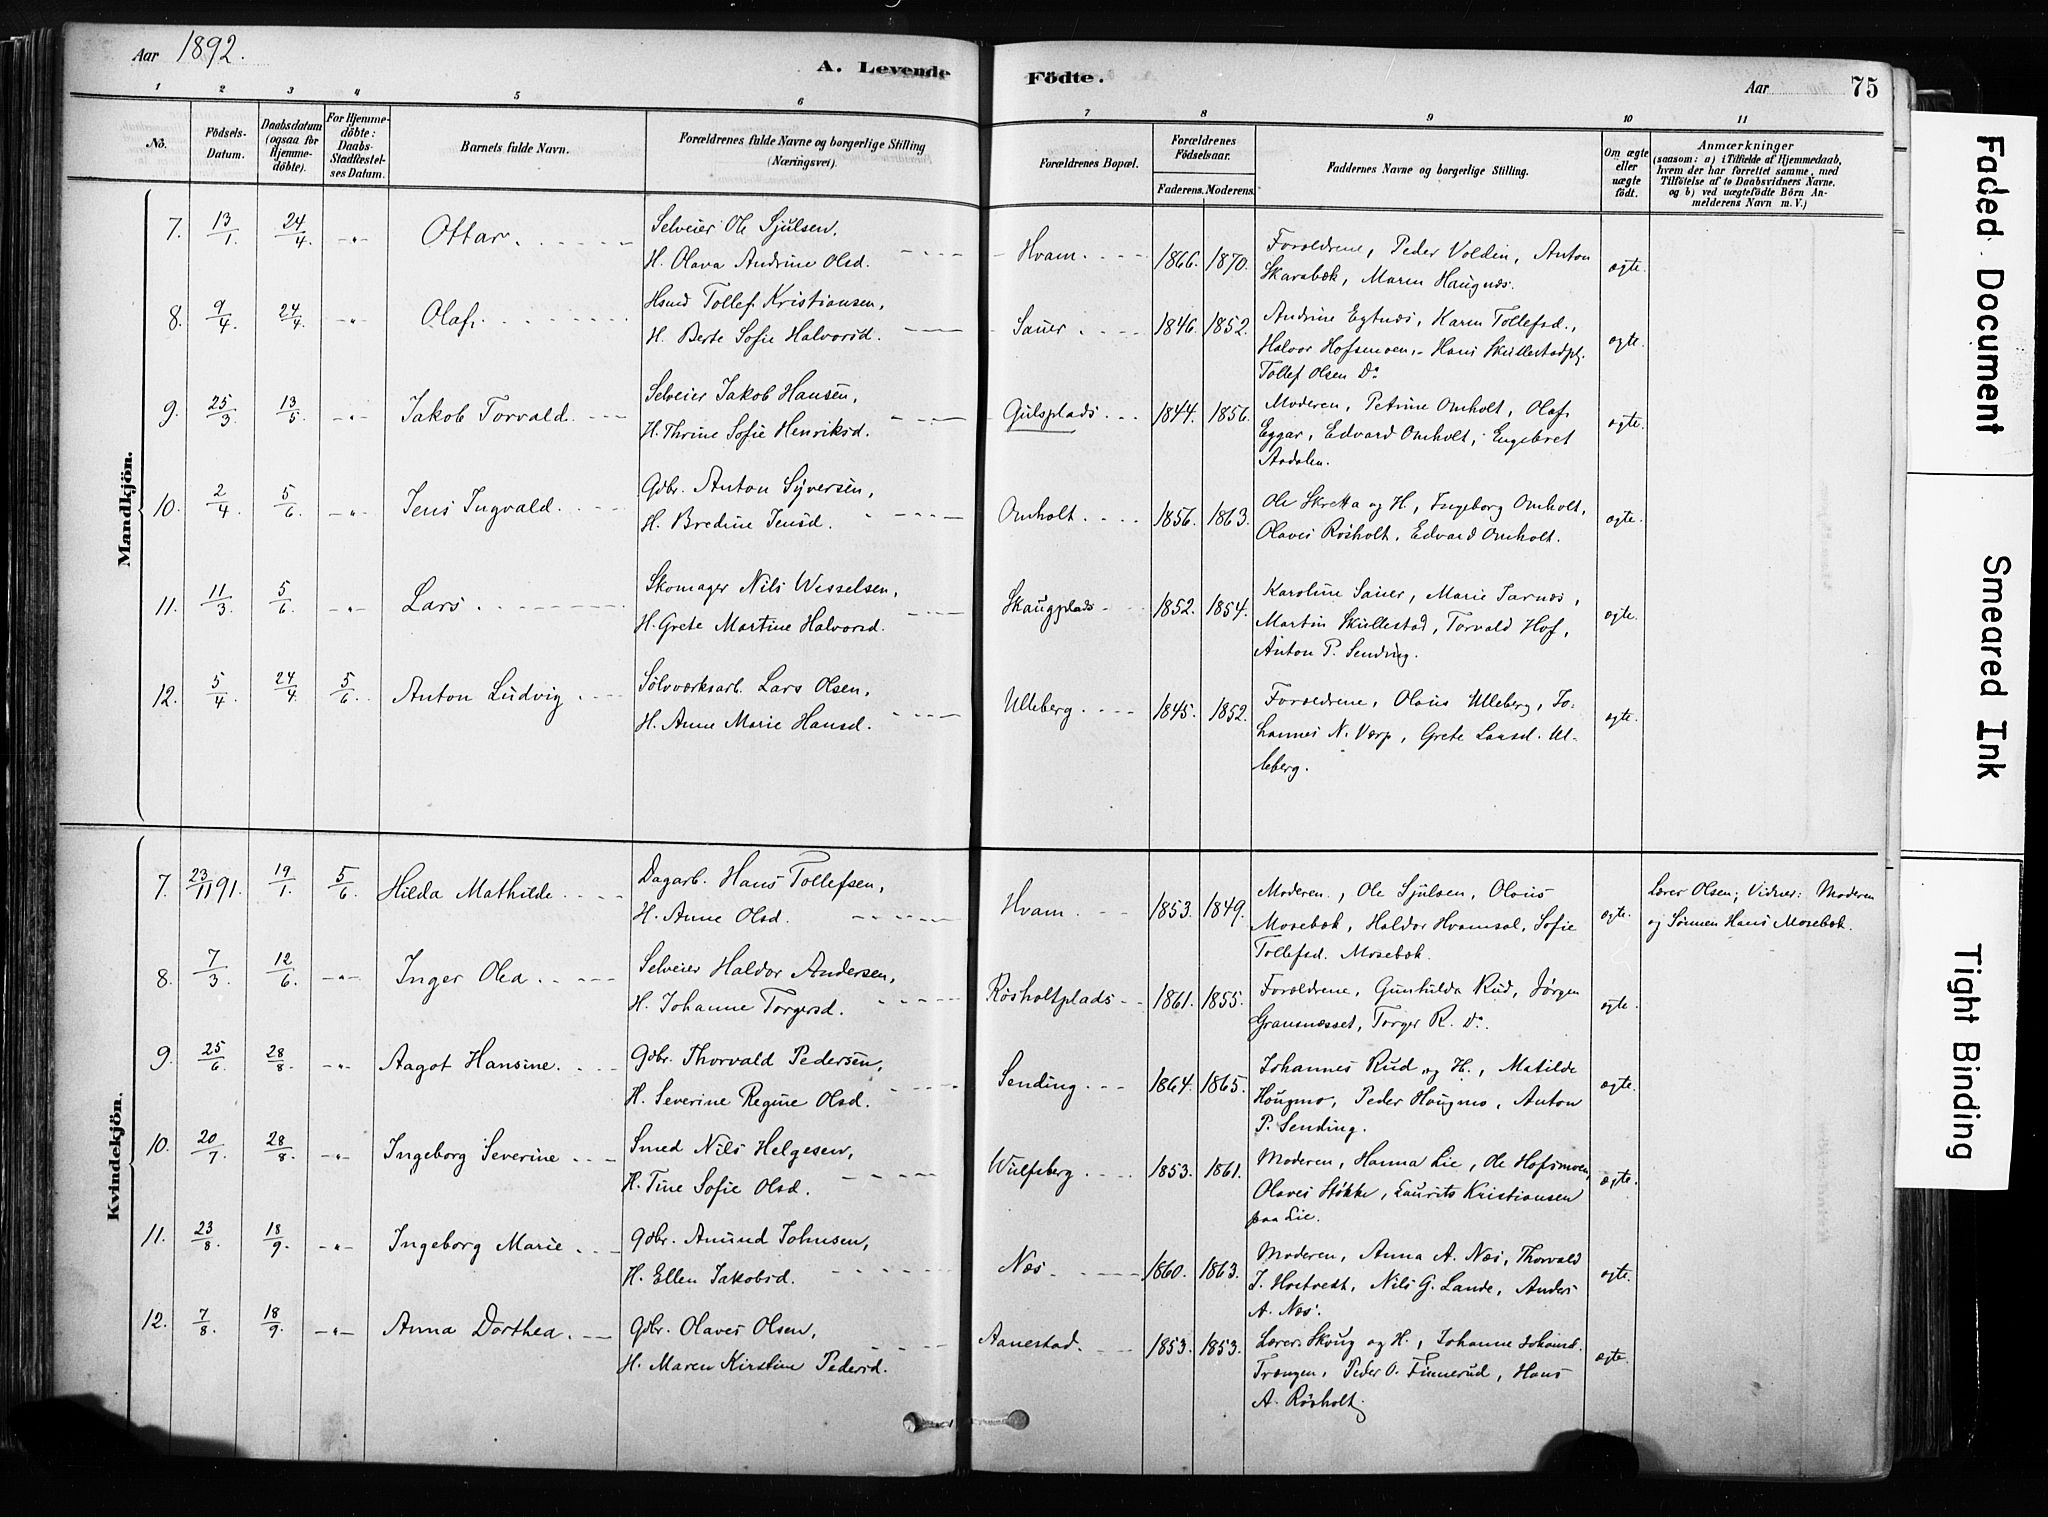 Aar 1892.
A. Levende
Födte.
Aar
75
1 2 3 4 5 6 7 8 9 10 11
No.
Födsels-
Datum.
Daabsdatum
(ogsaa for
Hjemme-
döbte).
For Hjemme-
döbte:
Daabs-
Stadfæstel-
ses Datum.
Barnets fulde Navn.
Forældrenes fulde Navne og borgerlige Stilling
(Næringsvei).
Forældrenes Bopæl.
Forældrenes
Födselsaar.
Faderens. Moderens.
Faddernes Navne og borgerlige Stilling.
Om ægte
eller
uægte
födt.
Anmærkninger
(saasom: a) i Tilfælde af Hjemmedaab,
hvem der har forrettet samme, med
Tilföielse af to Daabsvidners Navne,
og b) ved uægtefödte Börn An-
melderens Navn m. V.)
Mandkjön.
7. 13/1 24/4 -"- Ottar
Selveier Ole Sjulsen,
H. Olava Andrine Olsd.
Hvam. 1866. 1870.
Forældrene, Peder Voldin, Anton
Skarabæk, Maren Haugnæs.
ægte.
8. 9/4 24/4 -"- Olaf.
Hsmd Tollef Kristiansen,
H. Berte Sofie Halvorsd.
Sauer 1846. 1852.
Andrine Egtnæs, Karen Tollefsd.,
Halvor Hofsmoen, Hans Skullestadpl.
Tollef Olsen Do
ægte.
9. 25/3 13/5 -"- Jakob Torvald
Selveier Jakob Hansen,
H. Thrine Sofie Henriksd.
Gulsplads 1844. 1856.
Moderen, Petrine Omholt, Olaf
Eggar, Edvard Omholt, Engebret
Aadalen.
ægte.
10. 2/4 5/6 -"- Jens Ingvald
Gdbr. Anton Syversen,
H. Bredine Jensd.
Omholt. 1856. 1863.
Ole Skretta og H, Ingeborg Omholt,
Olaves Røsholt, Edvard Omholt.
ægte.
11. 11/3 5/6 -"- Lars
Skomager Nils Wesselsen,
H. Grete Martine Halvorsd.
Skaugplads 1852. 1854.
Karoline Sauer, Marie Tarnæs,
Martin Skullestad, Torvald Hof,
Anton P. Sending.
ægte.
12. 5/4 24/4 5/6 Anton Ludvig
Sølvværksarb. Lars Olsen,
H. Anne Marie Hansd.
Ulleberg. 1845. 1852.
Forældrene, Olaus Ulleberg, Jo-
hannes N. Værp, Grete Larsd. Ul-
leberg.
ægte.
Kvindekjön.
7. 23/11 91. 19/1 5/6 Hilda Mathilde
Dagarb. Hans Tollefsen,
H. Anne Olsd.
Hvam 1853. 1849.
Moderen., Ole Sjulsen, Olaus
Mosebæk, Haldor Hvamsal, Sofie
Tollefsd. Mosebæk.
ægte.
Lærer Olsen; Vidner: Moderen
og Sønnen Hans Mosebæk.
8. 7/3 12/6 -"- Inger Olea
Selveier Haldor Andersen,
H. Johanne Torgersd.
Røsholtplads 1861. 1855.
Forældrene, Gunhilda Rud, Jørgen
Gransnæsset, Torger R. Do.
ægte.
9. 25/6 28/8 -"- Aagot Hansine.
Gdbr. Thorvald Pedersen,
H. Severine Regine Olsd.
Sending 1864. 1865.
Johannes Rud og H., Matilde
Hougmo, Peder Hougmo, Anton
P. Sending.
ægte.
10. 20/7 28/8 -"- Ingeborg Severine
Smed Nils Helgesen,
H. Tine Sofie Olsd.
Wulfsberg 1853. 1861.
Moderen, Hanna Lie, Ole Hofsmoen,
Olaves Støkke, Laurits Kristiansen
paa Lie.
ægte.
11. 23/8 18/9 -"- Ingeborg Marie
Gdbr. Amund Johnsen,
H. Ellen Jakobsd.
Næs 1860. 1863.
Moderen, Anna A. Næs, Thorvald
J. Hostvedt, Nils G. Lande, Anders
A. Næs.
ægte.
12. 7/8 18/9 -"- Anna Dorthea
Gdbr. Olaves Olsen,
H. Maren Kirstine Pedersd.
Aanestad. 1853. 1853.
Lærer Skoug og H., Johanne Johansd.
Trængen, Peder O. Finnerud, Hans
A. Røsholt.
ægte.
Faded Document
Smeared Ink
Tight Binding